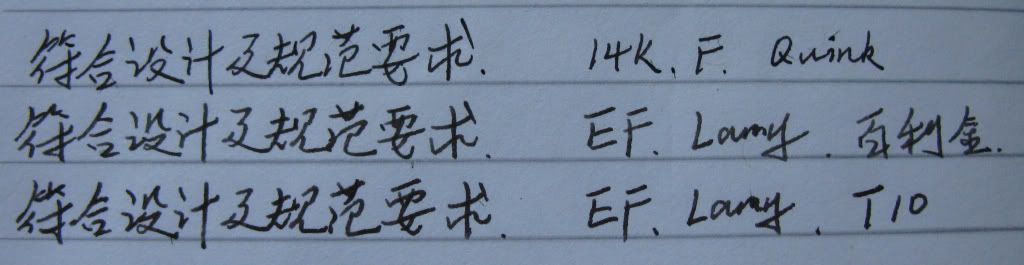 符合设计及规范要求. 14K. F. Quink
符合设计及规范要求. EF. Lamy. 百利金.
符合设计及规范要求. EF. Lamy. T10